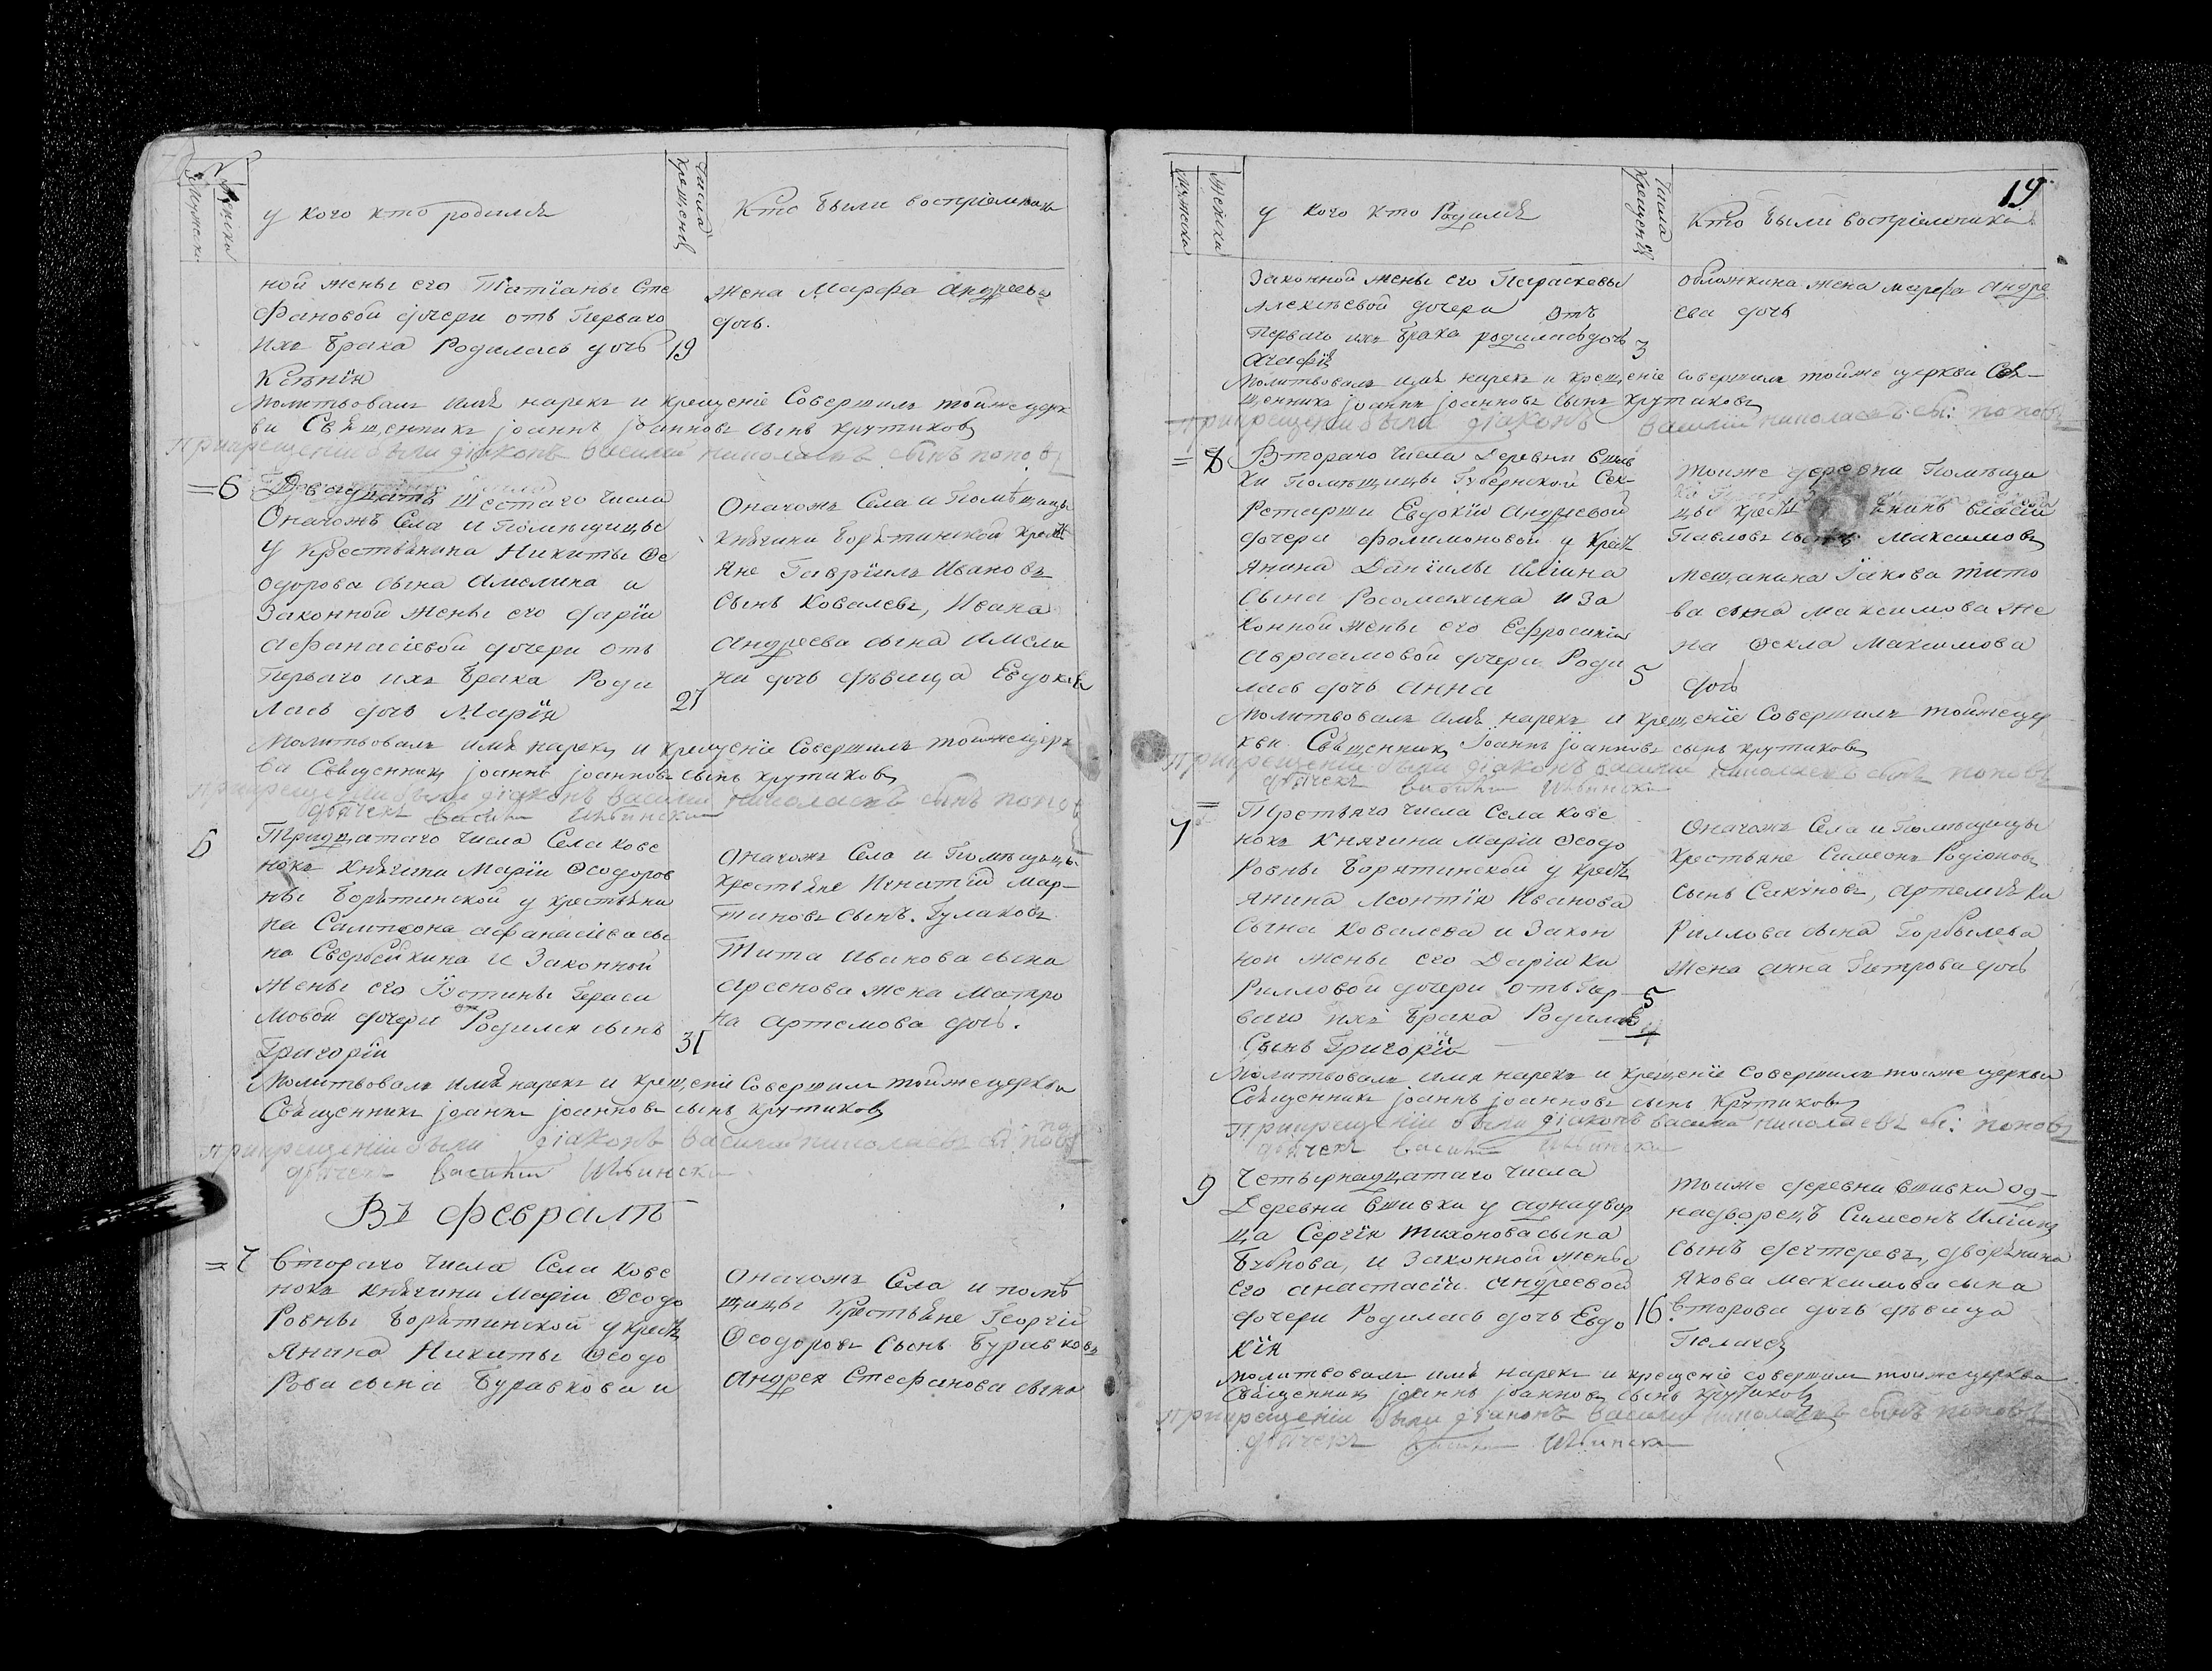 Мужеска
Женска
у кого кто родился
Числа
Крещенія
Кто были воспріемники
ной жены его Татіаны Сте
фановой дочери отъ Перваго
ихъ брака Родилась дочь
19
Ксѣнія
жена Марфа Андреева
дочь.
Молитвовалъ имя нарекъ и крещеніе Совершилъ тойже церк
ви Священникъ Іоаннъ Іоанновъ сынъ Крутиковъ
при крещеніи были діаконъ василій николаевъ сынъ поповъ
6
Двадцать Шестаго числа
Онагожъ Села и Помѣщицы
У Крестьянина Никиты Ѳе
одорова сына Амелина и
Законной жены его Дарїи
Афанасіевой дочери отъ
Перваго ихъ брака Роди
лась дочь Марїя
27
Онагожъ Села и Помѣщицы
Княгини Борятинской Крестъ
яне Гаврїилъ Ивановъ
Сынъ Ковалевъ, Ивана
Андреева сына Амели
на дочь дѣвица Евдокія
Молитвовалъ имя нарекъ и крещеніе Совершилъ тойже церк
ви Священникъ Іоаннъ Іоанновъ сынъ Крутиковъ
при крещеніи были діаконъ василій николаевъ сынъ поповъ
дьячекъ василій
6
Тридцатаго числа Села Кове
нокъ Княгини Марїи Ѳеодоров
ны Борятинской у крестьяни
на Сампсона Афанасіева сы
на Свербейкина и Законной
жены его Їустины Гераси
мовой дочери Родился сынъ
31
Григорїй
Онагожъ Села и Помѣщицы
Крестьяне Игнатїй Мар-
тиновъ сынъ. Гулаковъ
Тита Иванова сына
Арсенова жена Матро
на Артемова дочь.
Молитвовалъ имя нарекъ и крещеніе Совершилъ тойже церкви
Священникъ Іоаннъ Іоанновъ сынъ Крутиковъ
при крещеніи были діаконъ василій николаевъ сы: поповъ
дьячекъ василій
Въ февралѣ
7
Втораго числа Села Кове
нокъ Княгини Марїи Ѳеодо
ровны Борятинской у крестъ
янина Никиты Ѳеодо
рова сына Буравкова и
Онагожъ Села и помѣ
щицы Крестьяне Георгїй
Ѳеодоровъ Сынъ Буравковъ
Андрея Стефанова сына
19
Мужеска
Женска
у кого кто Родился
Числа
Крещенія
Кто были воспріемники
Законной жены его Параскевы
Алексѣевой дочери отъ
Перваго ихъ брака родилась дочь
3
Агафїя
обложкина жена марфа Андре
ева дочь
Молитвовалъ имя нарекъ и крещеніе совершилъ тойже церкви Свя-
щенникъ Іоаннъ Іоанновъ сынъ Крутиковъ
при крещеніи были діаконъ василій николаевъ сы: поповъ
8
Втораго числа Деревни Вшив
ки Помѣщицы Губернской Сек-
ретарши Евдокїи Андреевой
дочери Филимоновой у крестъ
янина Данїилы Иліина
сына Росомахина и За
конной жены его Ефросинїи
Авраамовой дочери Роди
5
лась дочь Анна
тойже деревни Помѣщи
цы Крестьянинъ Власїй
Павловъ сынъ Максимовъ
мещанина Їакова Тито
ва сына Максимова же
на Ѳекла Максимова
дочь
Молитвовалъ имя нарекъ и крещенїе Совершилъ тойже цер
кви Священникъ Іоаннъ Іоанновъ сынъ Крутиковъ
при крещеніи были діаконъ василій николаевъ сынъ поповъ
дьячекъ василій
7
Третьяго числа Села Кове
нокъ Княгини Марїи Ѳеодо
ровны Борятинской у крестъ
янина Леонтїя Иванова
сына Ковалева и Закон
ной жены его Дарїи Ки
рилловой дочери отъ Пер
5
ваго ихъ брака Родился
Сынъ Григорїй
Онагожъ Села и Помѣщицы
Крестьяне Симеонъ Родїоновъ
сынъ Сакуновъ, Артемїя Ки
риллова сына Горбылева
жена Анна Петрова дочь
Молитвовалъ имя нарекъ и крещенїе совершилъ тойже церкви
Священникъ Іоаннъ Іоанновъ сынъ Крутиковъ
при крещеніи были діаконъ василій николаевъ сы: поповъ
дьячекъ василій
9
Четырнадцатаго числа
Деревни Вшивки у аднадвор
ца Сергїя Тихонова сына
Бубнова, и Законной жены
его Анастасїи Андреевой
дочери Родилась дочь Евдо
16
кїя
Тойже деревни Вшивки Од-
надворецъ Симеонъ Иліинъ
сынъ Дехтеревъ, дворянина
Якова Максимова сына
Второва дочь дѣвица
Пелагея
Молитвовалъ имя нарекъ и крещеніе совершилъ тойже церкви
Священникъ Іоаннъ Іоанновъ сынъ Крутиковъ
при крещеніи были діаконъ василій николаевъ сынъ поповъ
дьячекъ василій